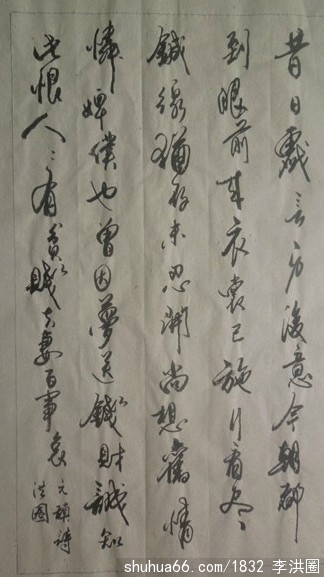 昔日戲言身後意今朝都
到眼前来衣裳已施行看尽
鍼線猶存未忍開尚想舊情
憐婢僕也曾因夢送錢財誠知
此恨人人有貧賤夫妻百事哀
元稹詩
洪圈
shuhua66.com/1832 李洪圈